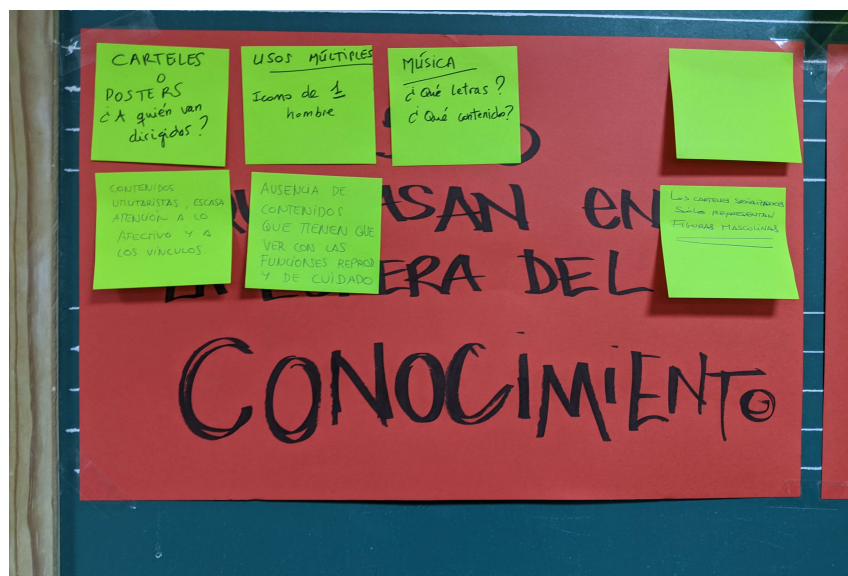 CARTELES
O
POSTERS
¿A quién van
dirigidos?
USOS MÚLTIPLES
Icono de 1
hombre
MÚSICA
¿Qué letras?
¿Qué contenido?
CONTENIDOS
UTILITARISTAS, ESCASA
ATENCIÓN A LO
AFECTIVO Y A
LOS VÍNCULOS.
AUSENCIA DE
CONTENIDOS
QUE TIENEN QUE
VER CON LAS
FUNCIONSES REPROD
Y DE CUIDADO
LOS CARTELES SEÑALIZADORES
SÓLO REPRESENTAN
FIGURAS MASCULINAS
ASAN EN
ERA DEL
CONOCIMIENTO